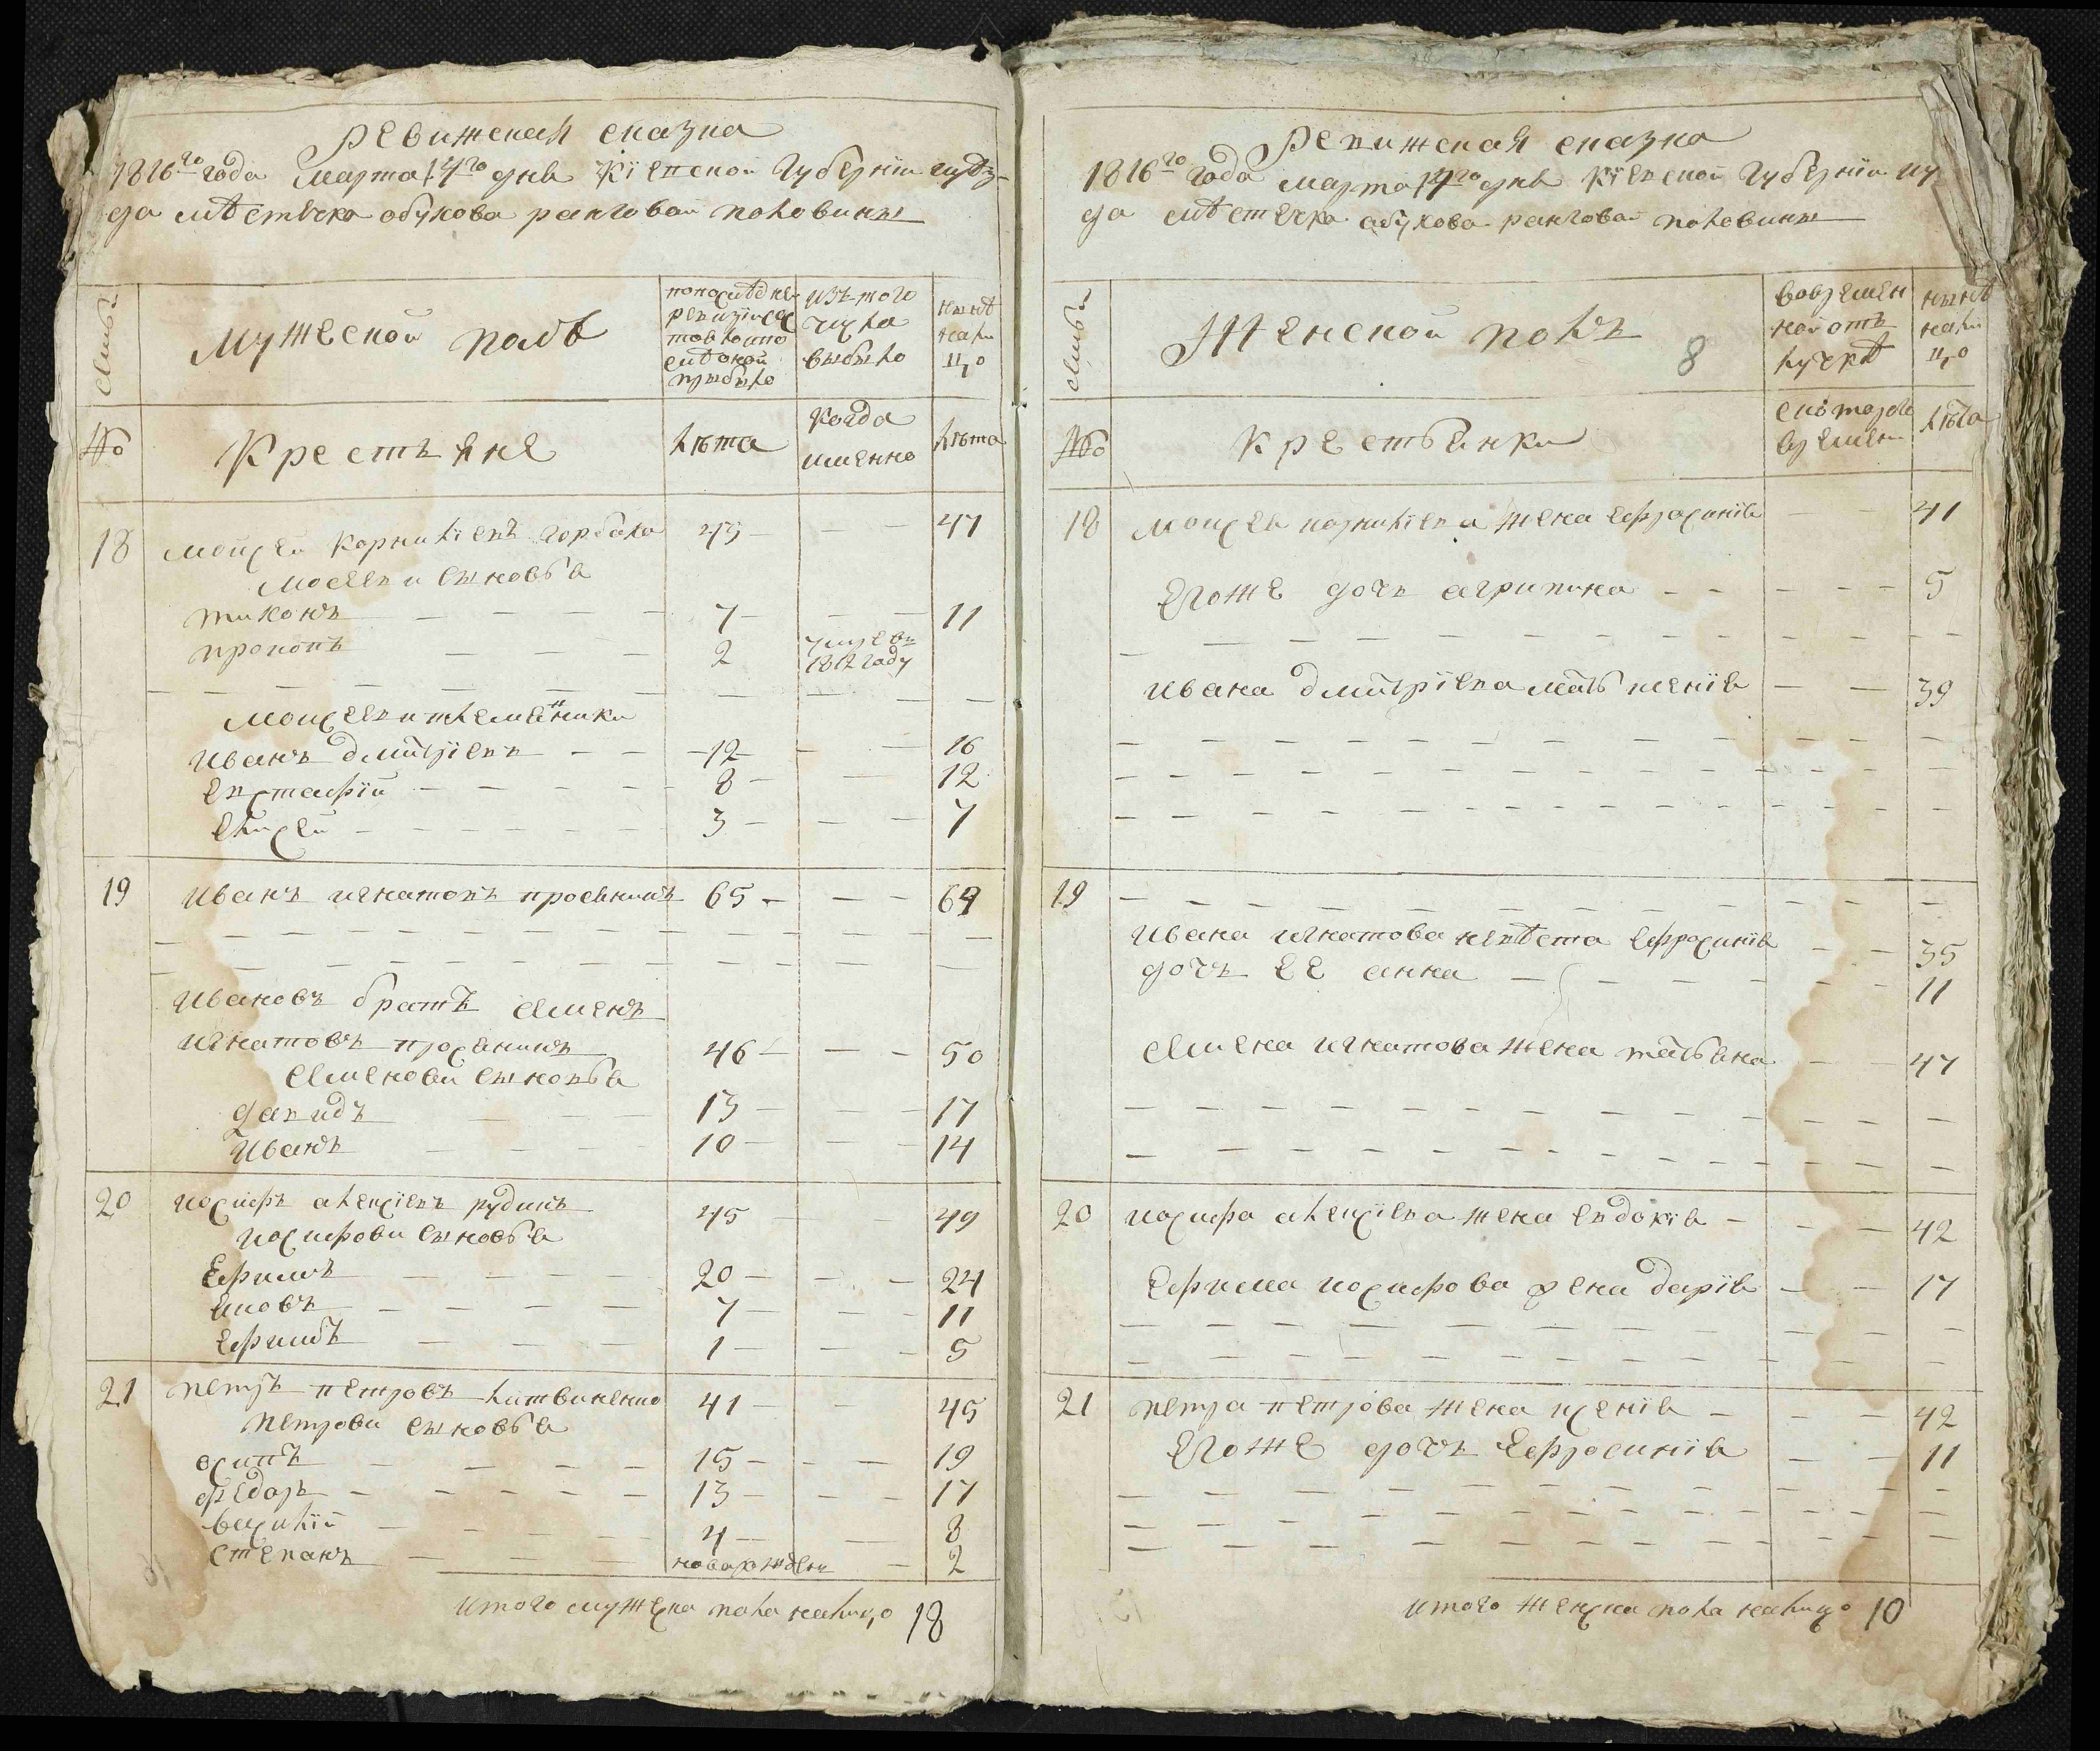 Ревижская сказка
1816го года марта 14го дня Кіевской губерніи уѣз-
да мѣстечка обухова ранговой половины
Семьи
Мужеской полъ
по последней
ревизіи сос
тояло и по
сле оной
прибыло
изъ того
числа
выбыло
ныне
нали
цо
№
Крестьяне
лѣта
когда
именно
лѣта
18 мойсей корнилієвъ горбала 43 — — — 47
мосеевы сыновья
тихонъ — — — — 7 — — — 11
прокопъ — — — 2 умре въ
1812 году
мойсеевы племенники
иванъ дмитріевъ — — 12 — — — 16
евстафій — — — — 8 — — — 12
елисей — — — — — 3 — — — 7
19 иванъ игнатовъ просяникъ 65 — — — 69
ивановъ братъ семенъ
игнатовъ просяникъ 46 — — — 50
семенови сыновья
давидъ — — — 13 — — — 17
иванъ — — — — 10 — — — 14
20 іосифъ алексіевъ рудикъ 45 — — 49
іосифови сыновья
Ефимъ — — — — 20 — — — 24
яковъ — — — — — 7 — — — 11
Ефимъ — — — — 1 — — — 5
21 петръ петровъ литвиненко 41 — — — 45
петрови сыновья
осипъ — — — — — 15 — — — 19
федоръ — — — — — 13 — — — 17
василій — — — — — 4 — — 8
степанъ — — — — новорожденъ — 2
итого мужска пола налицо 18
Ревижская сказка
1816го года марта 14го дня Кіевской губерніи уѣз
да мѣстечка обухова ранговой половины
Семьи
Женской полъ
8
во времен
ной отъ
лучкѣ
ныне
нали
цо
№
крестьянки
с котораго
времени
лѣта
18 мойсея корниліева жена ефросинія — — 41
Егоже дочь агрипина — — — — — 5
ивана дмитріева мать ксенія — — 39
19
ивана игнатова невѣста ефросинія — — 35
дочь ее анна — — — — — — 11
семена игнатова жена татьяна — — 47
20 іосифа алексіева жена евдокія — — — 42
Ефима іосифова жена дарія — — 17
21 петра петрова жена ксенія — — — 42
Егоже дочь Ефросинія — — 11
итого женска пола налицо 10